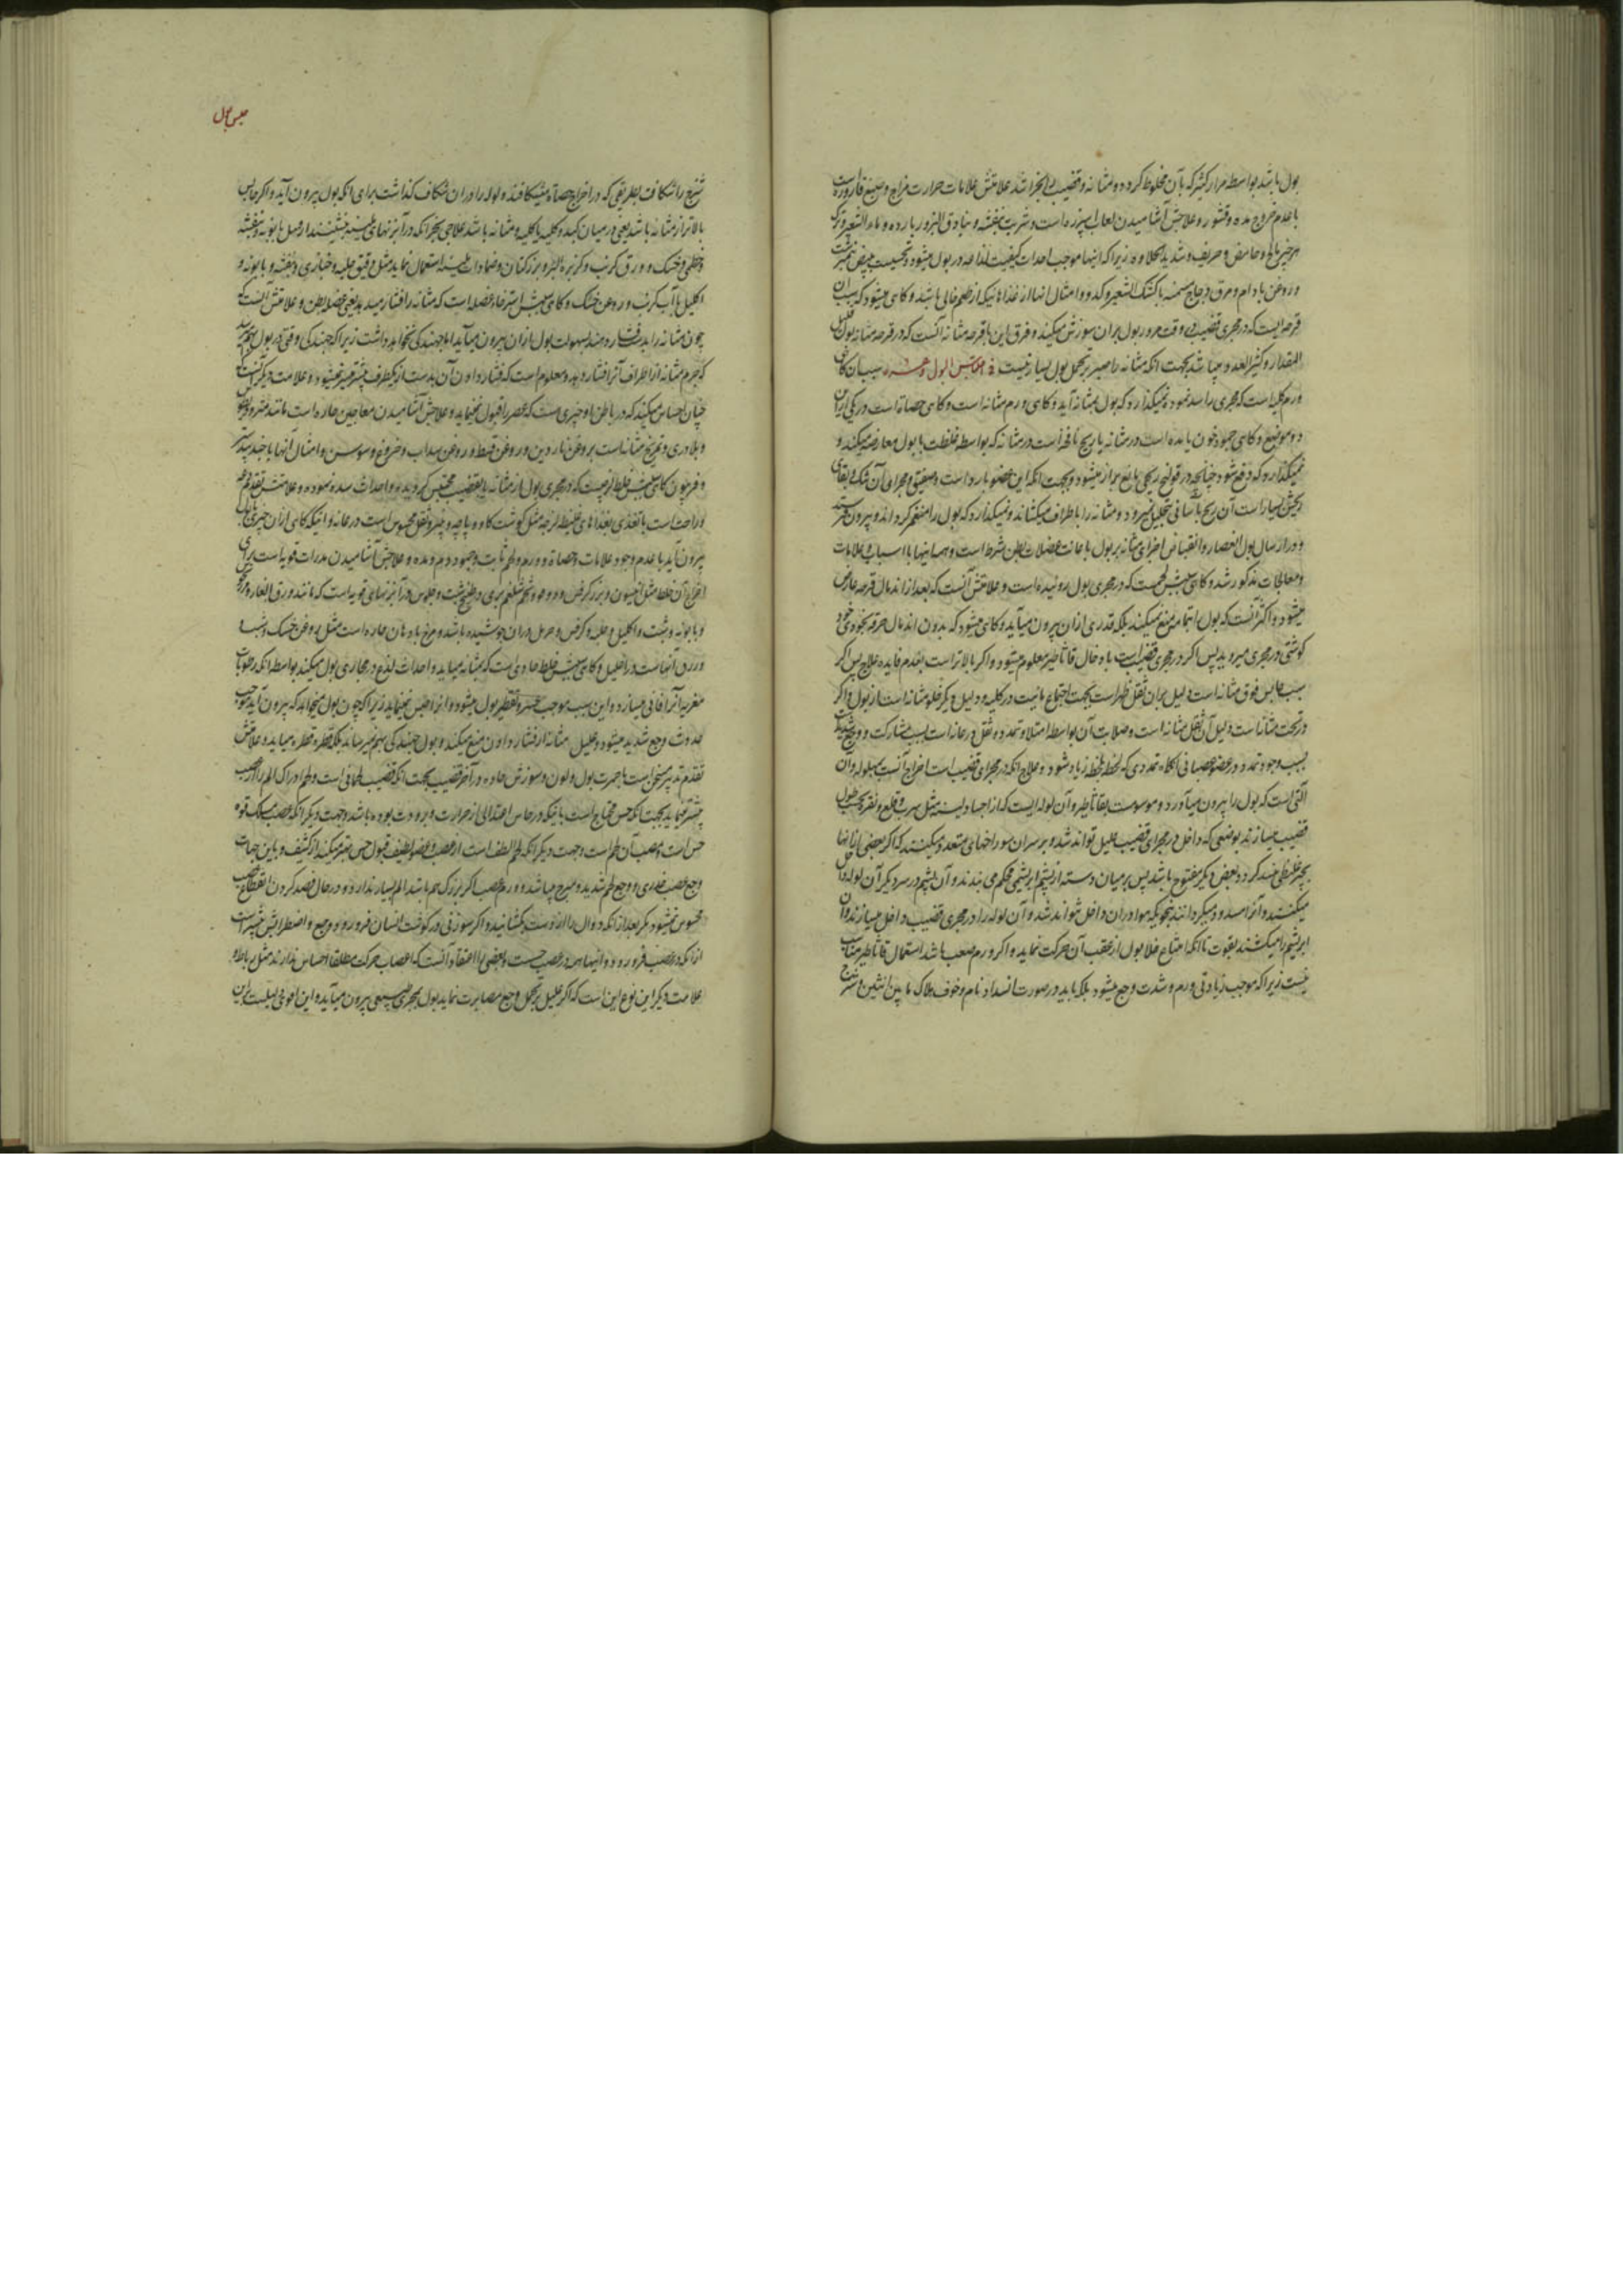 بول باشد بواسطه مرار کثیر که بآن مخلوط کردد و مثانه و قضیب علامتش علامات حرارت مزاج و صبغ قاروره است
با عدم خروج مده و قشور و علاجش آشامیدن لعاب اسپرزه است و شربت بنفشه و بنادق البزور بارده و ماء الشعیر و ترک
هر چیز حامض و حریف و شدید الحلاوه زیرا که اینها موجب احداث کیفیت لذاعه در بول میشود
و روغن بادام و مرق دجاج مسمنه با کشک الشعیر و کدو و امثال انها از غذاهائیکه از طعم خالی باشد و کاهی میشود که سبب آن
قرحه ایست که در مجری قضیب وقت مرور بول بران سوزش میکند و فرق این با قرحه مثانه آنست که در قرحه مثانه بول قلیل
المقدار و کثیر العدد میباشد بجهت انکه مثانه را صبر بر تحمل بول بسیار نیست احتباس البول و عسره سبب آن کاهی
ورم کلیه است که مجری را سد نموده نمیکذارد که بول بمثانه آید و کاهی ورم مثانه است و کاهی حصاة است در یکی ازان
دو موضع و کاهی جمود خون یا مده است در مثانه یا ریح نافخه است در مثانه که بواسطه غلظت با بول معارضه میکند و
نمیکذارد که دفع شود چنانچه در قولنج ریحی مانع براز میشود و بجهت انکه این عضو بارد است و ضیق و مجرای آن تنک و بقای
ریحش بسیار است آن ریح بآسانی تحلیل نمیرود و مثانه را باطراف میکشاند و نمیکذارد که بول را منضم کردد و بیرون فرستد
و در ارسال بول انعصار و انقباض اجزای مثانه بر بول با اعانت عضلات بطن شرط است و همه اینها با اسباب و علامات
و معالجات مذکور شد و کاهی سببش لحمیست که در مجری بول روئیده است و علامتش آنست که بعد از اندمال قرحه عارض
میشود و اکثر آنست که بول را بتمامه منع نمیکند بلکه قدری ازان بیرون میآید و کاهی میشود که بدون اندمال قرحه بخودی خود
کوشتی در مجری میروید پس اکر در مجری قضیب است بادخال قاثاطیر معلوم میشود و اکر بالاتر است بعدم فایده علاج پس اکر
سبب حابس فوق مثانه است دلیل بران ثقل ظهر است بجهت اجتماع مائیت در کلیه و دلیل دیکر خلو مثانه است از بول و اکر
در تحت مثانه است دلیل آن ثقل مثانه است و صلابت آن بواسطه امتلا و تمدد و ثقل در عانه است بسبب مشارکت و وجع شدید
بسبب وجود تمدد در عضو عصبانی تمددی که لحظه بلحظه زیاد شود و علاج انکه در مجرای قضیب است اخراج آنست بمبوله و آن
آلتی است که بول را بیرون میآورد و موسوم است بقاثاطیر و آن لوله ایست که از اجساد لینه مثل سرب و قلع و نقره بحسب طول
قضیب میسازند بوضعی که داخل در مجرای قضیب علیل تواند شد و بر سر آن سوراخهای متعدد میکنند که اکر بعضی از آنها
بچیز غلیظی بند کردد بعضی دیکر مفتوح باشد پس بر میان دسته از پشم ابریشمی محکم می بندند و آن پشم در سر دیکر آن لوله داخل
میکنند و آنرا مسدود میکردانند بنحویکه هوا دران داخل نتواند شد و آن لوله را در مجری قضیب داخل میسازند و آن
ابریشم را میکشند بقوت تا انکه امتناع خلا بول از عقب آن حرکت نماید و اکر ورم صعب باشد استعمال قاثاطیر مناسب
نیست زیرا که موجب زیادتی ورم و شدت وجع میشود بلکه باید در صورت انسداد تام و خوف هلاک ما بین انثیین و شرج
حبس بول
شرج را شکافت بطریقی که در اخراج حصاة میشکافند و لوله را در ان شکاف کذاشت برای انکه بول بیرون آید و اکر حابس
بالاتر از مثانه باشد یعنی در میان کبد و کلیه یا کلیه و مثانه باشد علاجی بجز انکه در آبزنهای ملینه بنشینند از مثل بابونه و بنفشه
و خطمی و خسک و ورق کرنب و کزبره البئر و بزر کتان و ضمادات ملینه استعمال نماید مثل دقیق حلبه و خبازی و بنفشه و بابونه و
اکلیل با آب کرنب و روغن خسک و کاهی سببش استرخاء عضله است که مثانه را افشار میدهد یعنی عضله بطن و علامتش آنست که
چون مثانه را بدست فشار دهند بسهولت بول ازان بیرون میآید اما جهندکی نخواهد داشت زیرا که جهندکی وقتی در بول بهم رسد
که جرم مثانه از اطراف آنرا فشار دهد و معلوم است که فشار دادن آن بدست از یکطرف بیشتر میسر نمیشود و علامت دیکر آنست که
چنان احساس میکند که در باطن او چیزی هست که عصر را قبول نمیکند و علاجش آشامیدن معاجین حاره است مانند مثرودیطوس
و بلادری و تمریخ مثانه است بروغن ناردین و روغن قسط و روغن سداب و خروع و سوسن و امثال آنها با جندبیدستر
و فرفیون کاهی سببش خلط لزجیست که در مجری بول از مثانه یا قضیب محتبس کردیده و احداث سده نموده و علامتش تقدم تخم
و راحت است یا تغذی بغذاهای غلیظ لزجه مثل کوشت کاو و پاچه و پنیر و ثقل محسوس است در عانه و اینکه کاهی ازان چیزی با بول
بیرون آید با عدم وجود علامات حصاة و ورم و لحم ثابت و جمود دم و مده و علاجش آشامیدن مدرات قویه است برای
اخراج آن خلط مثل انیسون و بزر کرفس و دوقو و تخم شلغم بری در طبیخ شبت و جلوس در آبزنهای قویه است که مانند ورق الغار و مرزنجوش
و بابونه و شبت و اکلیل و حلبه و کرفس و حرمل دران جوشیده باشد و مزج بادهان حاره است مثل روغن خسک و شبت
و زرق آنهاست در احلیل و کاهی سببش خلط حادی است که بمثانه میآید و احداث لذع در مجاری بول میکند بواسطه انکه رطوبات
مغریه آنرا فانی میسازد و این سبب موجب عسر و تقطیر بول میشود و آنرا حبس نمینماید زیرا که چون بول میخواهد که بیرون آید موجب
حدوث وجع شدید میشود و علیل مثانه را از فشار دادن منع میکند و بول جهندکی بهم نمیرساند بلکه قطره قطره میآید و علامتش
تقدم تدبیر مسخن است با حمرت بول و لون و سوزش حاده در آخر قضیب بجهت انکه قضیب لحمانی است و لحم ادراک الم را از عصب
بیشتر مینماید بجهت انکه حس محتاج است باینکه در حاس اعتدالی از حرارت و برودت بوده باشد و جهت دیکر انکه عصب مسلک قوه
حس است و عصب آن لحم است و جهت دیکر انکه لحم الطف است از عصب و عضو لطیف قبول حس بهتر میکند از کثیف و باین جهات
وجع عصب خدری و وجع لحم شدید و مبرح میباشد و ورم عصب اکر بزرک هم باشد الم بسیار ندارد و در حال فصد کردن انقطاع عصب
محسوس نمیشود مکر بعد از انکه دوال را از دست بکشایند و اکر سوزنی در کوشت انسان فرو رود وجع و اضطرابش بیشتر است
از انکه در عصب فرو رود و اینها همه در عصب حسست و بعضی را اعتقاد آنست که اعصاب حرکت مطلقا احساس ندارند مثل رباط و
علامت دیکر این نوع این است که اکر علیل بر تحمل وجع مصابرت نماید بول بمجری طبیعی بیرون میآید و این